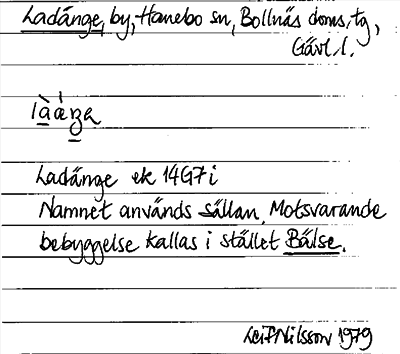 Ladänge, by, Hanebo sn, Bollnäs doms.tg,
Gävl.l.
Ladänge ek 14G7i
Namnet används sällan. Motsvarande
bebyggelse kallas i stället Bälse.
Leif Nilsson 1979